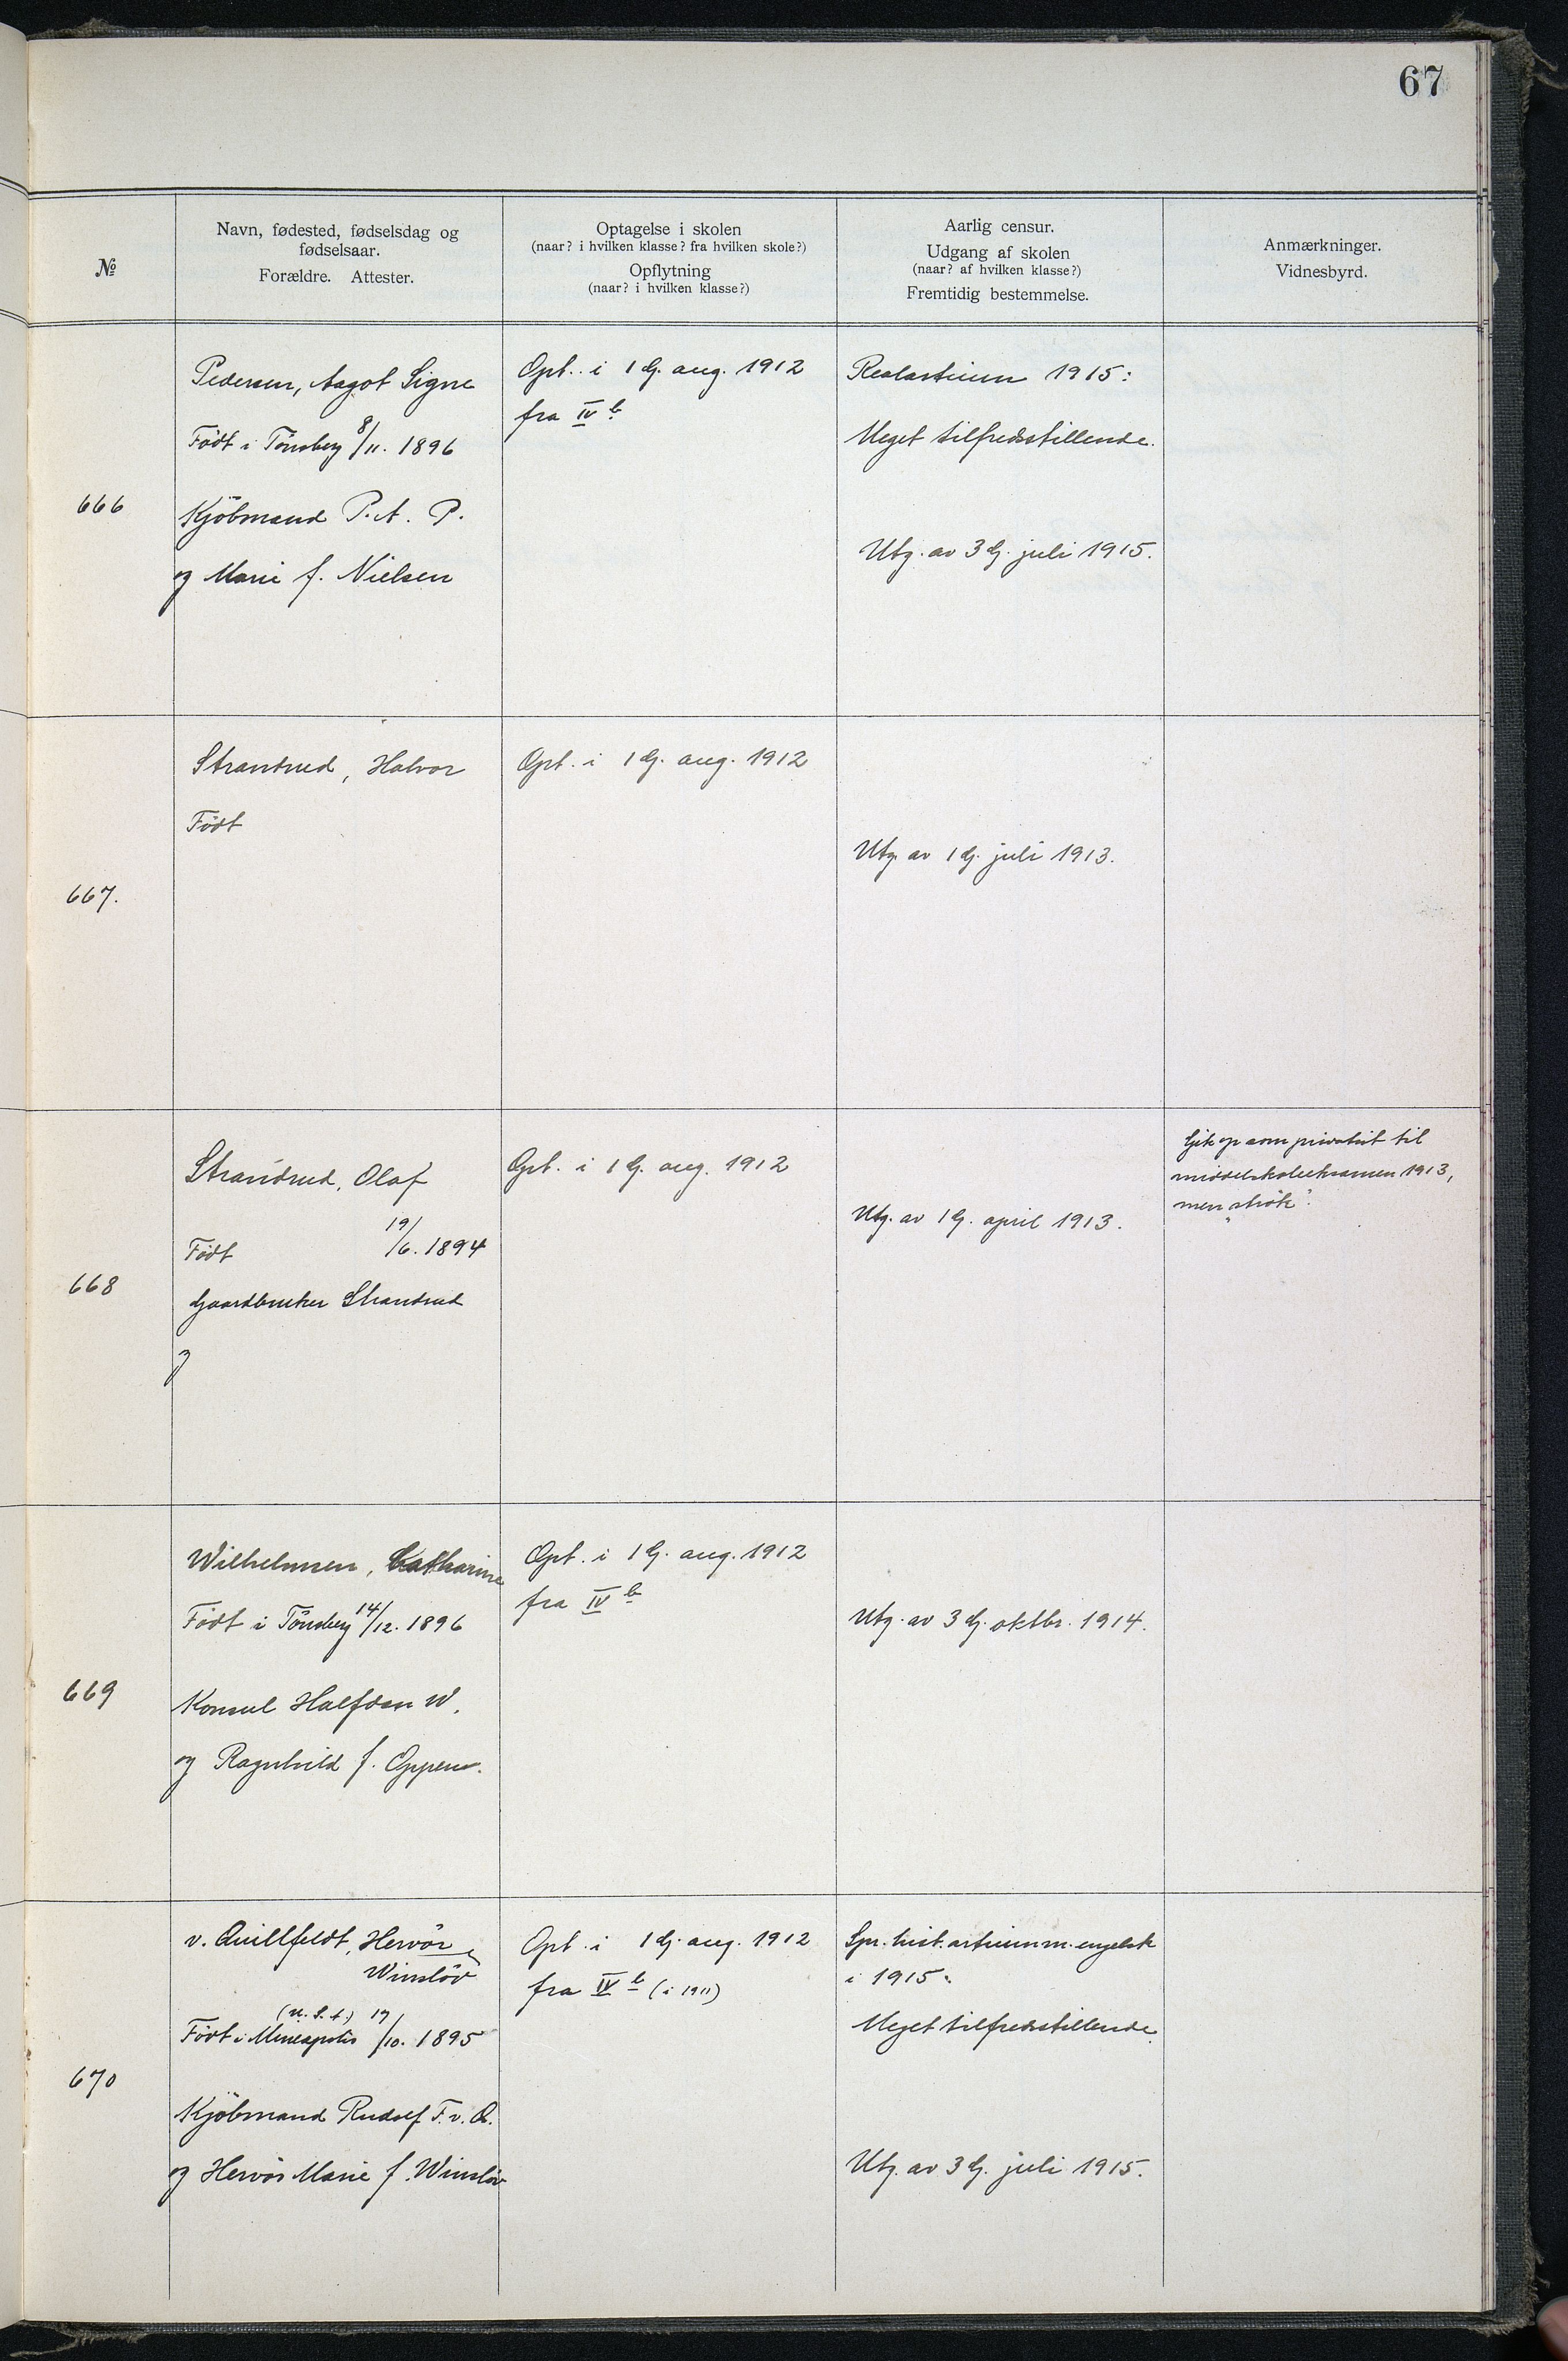 67
№
Navn, fødested, fødselsdag og
fødselsaar.
Forældre. Attester.
Optagelse i skolen
(naar? i hvilken klasse? fra hvilken skole?)
Opflytning
(naar? i hvilken klasse?)
Aarlig censur.
Udgang af skolen
(naar? af hvilken klasse?)
Fremtidig bestemmelse.
Anmærkninger.
Vidnesbyrd.
666
Pedersen, Aagot Signe
Født i Tönsberg 8/11. 1896
Kjöbmand P. A. P.
og Marie f. Nielsen
Opt. i 1 G. aug. 1912
fra IV b
Realartium 1915:
Meget tilfredsstillende.
Utg. av 3 G. juli 1915.
667.
Strandrud, Halvor
Födt
Opt. i 1 G. aug. 1912
Utg. av 1 G. juli 1913.
668
Strandrud, Olaf
Födt 19/6. 1894
Gaardbruker Strandrud
og
Opt. i 1 G. aug. 1912
Utg. av 1 G. april 1913.
Gik op som privatist til
middelskoleeksamen 1913,
men „strök".
669
Wilhelmsen, Catharine
Födt i Tönsberg 14/12. 1896
Konsul Halfdan W.
og Ragnhild f. Oppen.
Opt. i 1 G. aug. 1912
fra IV b
Utg. av 3 G. oktbr. 1914.
670
v. Quillfeldt, Hervör
Winslöv
(U. S. A.)
Födt i Mineapolis 17/10. 1895
Kjöbmand Rudolf F. v. Q.
og Hervör Marie f. Winslöv
Opt. i 1 G. aug. 1912
fra IV b (i 1911)
Spr. hist. artium m. engelsk
i 1915:
Meget tilfredsstillende.
Utg. av 3 G. juli 1915.